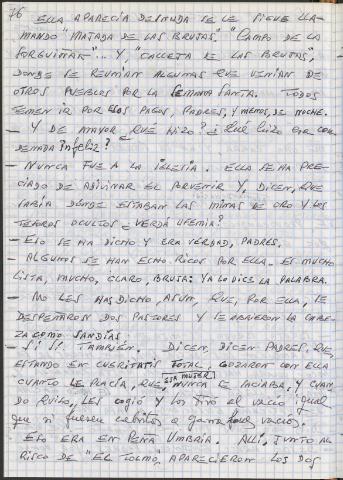 76
ELLA APARECIA DESNUDA SE LE SIGUE LLA-
MANDO "MAJADA DE LAS BRUJAS." "CAMPO DE LA
SORGUIÑAK"... Y, "CALLEJA DE LAS BRUJAS",
DONDE SE REUNIAN ALGUNAS QUE VENIAN DE
OTROS PUEBLOS POR LA SEMANA SANTA. TODOS
TEMEN IR POR ESOS PAGOS, PADRES, Y MENOS, DE NOCHE.
— Y DE MAYOR, QUE HIZO? ¿ Que hizo esa con
denada infeliz?
— NUNCA FUE A LA IGLESIA. ELLA SE HA PRE-
CIADO DE ADIVINAR EL PORVENIR Y, DICEN, QUE
SABIA DONDE ESTABAN LAS MINAS DE ORO Y LOS
TESOROS OCULTOS ¿ VERDÁ UFEMIA?
— ESO SE HA DICHO Y ERA VERDAD, PADRES.
— ALGUNOS SE HAN ECHO RICOS POR ELLA. ES MUCHO
LISTA, MUCHO, CLARO, BRUJA: YA LO DICE LA PALABRA.
— NO LES HAS DICHO, ASUN, QUE, POR ELLA, SE
DESPEÑARON DOS PASTORES Y SE ABRIERON LA CABE-
ZA COMO SANDÍAS.
— SI, SI. TAMBIÉN. DICEN, DICEN PADRES, QUE,
ESTANDO EN CUERITATIS TOTAL, GOZARON CON ELLA
CUANTO LE PLACÍA, QUE, ESA MUJER NUNCA SE SACIABA, Y CUAN
DO QUISO, LES COGIÓ Y LOS TIRÓ AL VACIO igual
que si fuesen cabritos a
ESO ERA EN PEÑA UMBRIA. ALLI, JUNTO AL
RISCO DE "EL TOLMO", APARECIERON LOS DOS